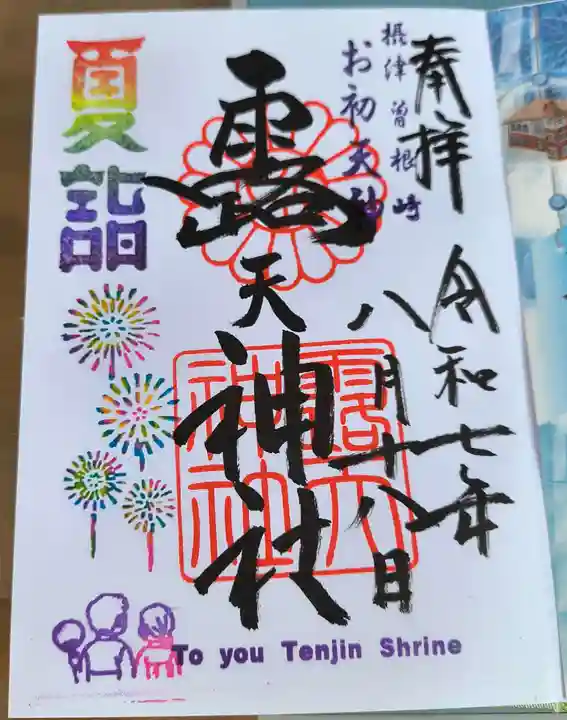 奉拝
令和七年
八月十八日
摂津曽根崎
お初天神
露天神社
露天
神社
夏詣
To you Tenjin Shrine